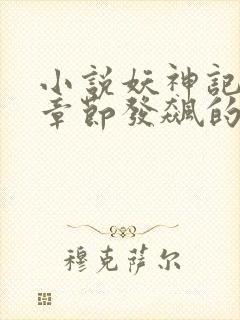 小説妖神記
章節發飆的
穆克萨尔